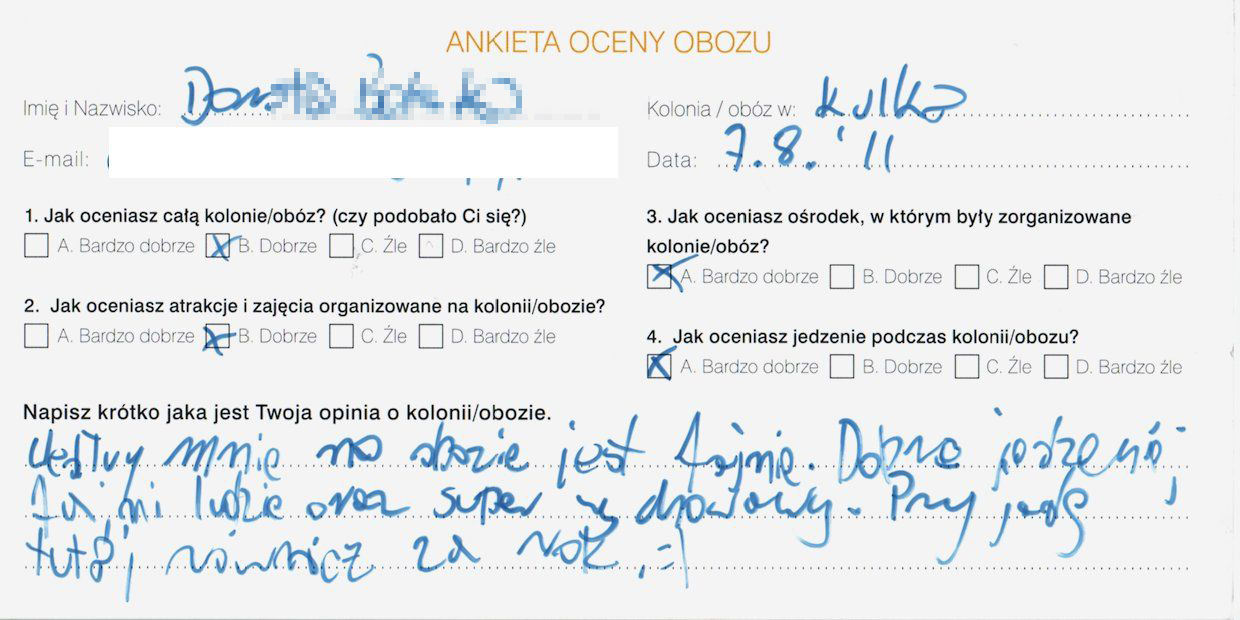 ANKIETA OCENY OBOZU
Imię i Nazwisko:
E-mail:
Kolonia / obóz w: Kulka
Data: 7.8.'11
1. Jak oceniasz całą kolonie/obóz? (czy podobało Ci się?)
A. Bardzo dobrze B. Dobrze C. Źle D. Bardzo źle
2. Jak oceniasz atrakcje i zajęcia organizowane na kolonii/obozie?
A. Bardzo dobrze B. Dobrze C. Źle D. Bardzo źle
3. Jak oceniasz ośrodek, w którym były zorganizowane
kolonie/obóz?
A. Bardzo dobrze B. Dobrze C. Źle D. Bardzo źle
4. Jak oceniasz jedzenie podczas kolonii/obozu?
A. Bardzo dobrze B. Dobrze C. Źle D. Bardzo źle
Napisz krótko jaka jest Twoja opinia o kolonii/obozie.
Według mnie na obozie jest fajnie. Dobre jedzenie,
fajni ludzie oraz super wychowawcy. Przyjadę
tutaj również za rok ;=)